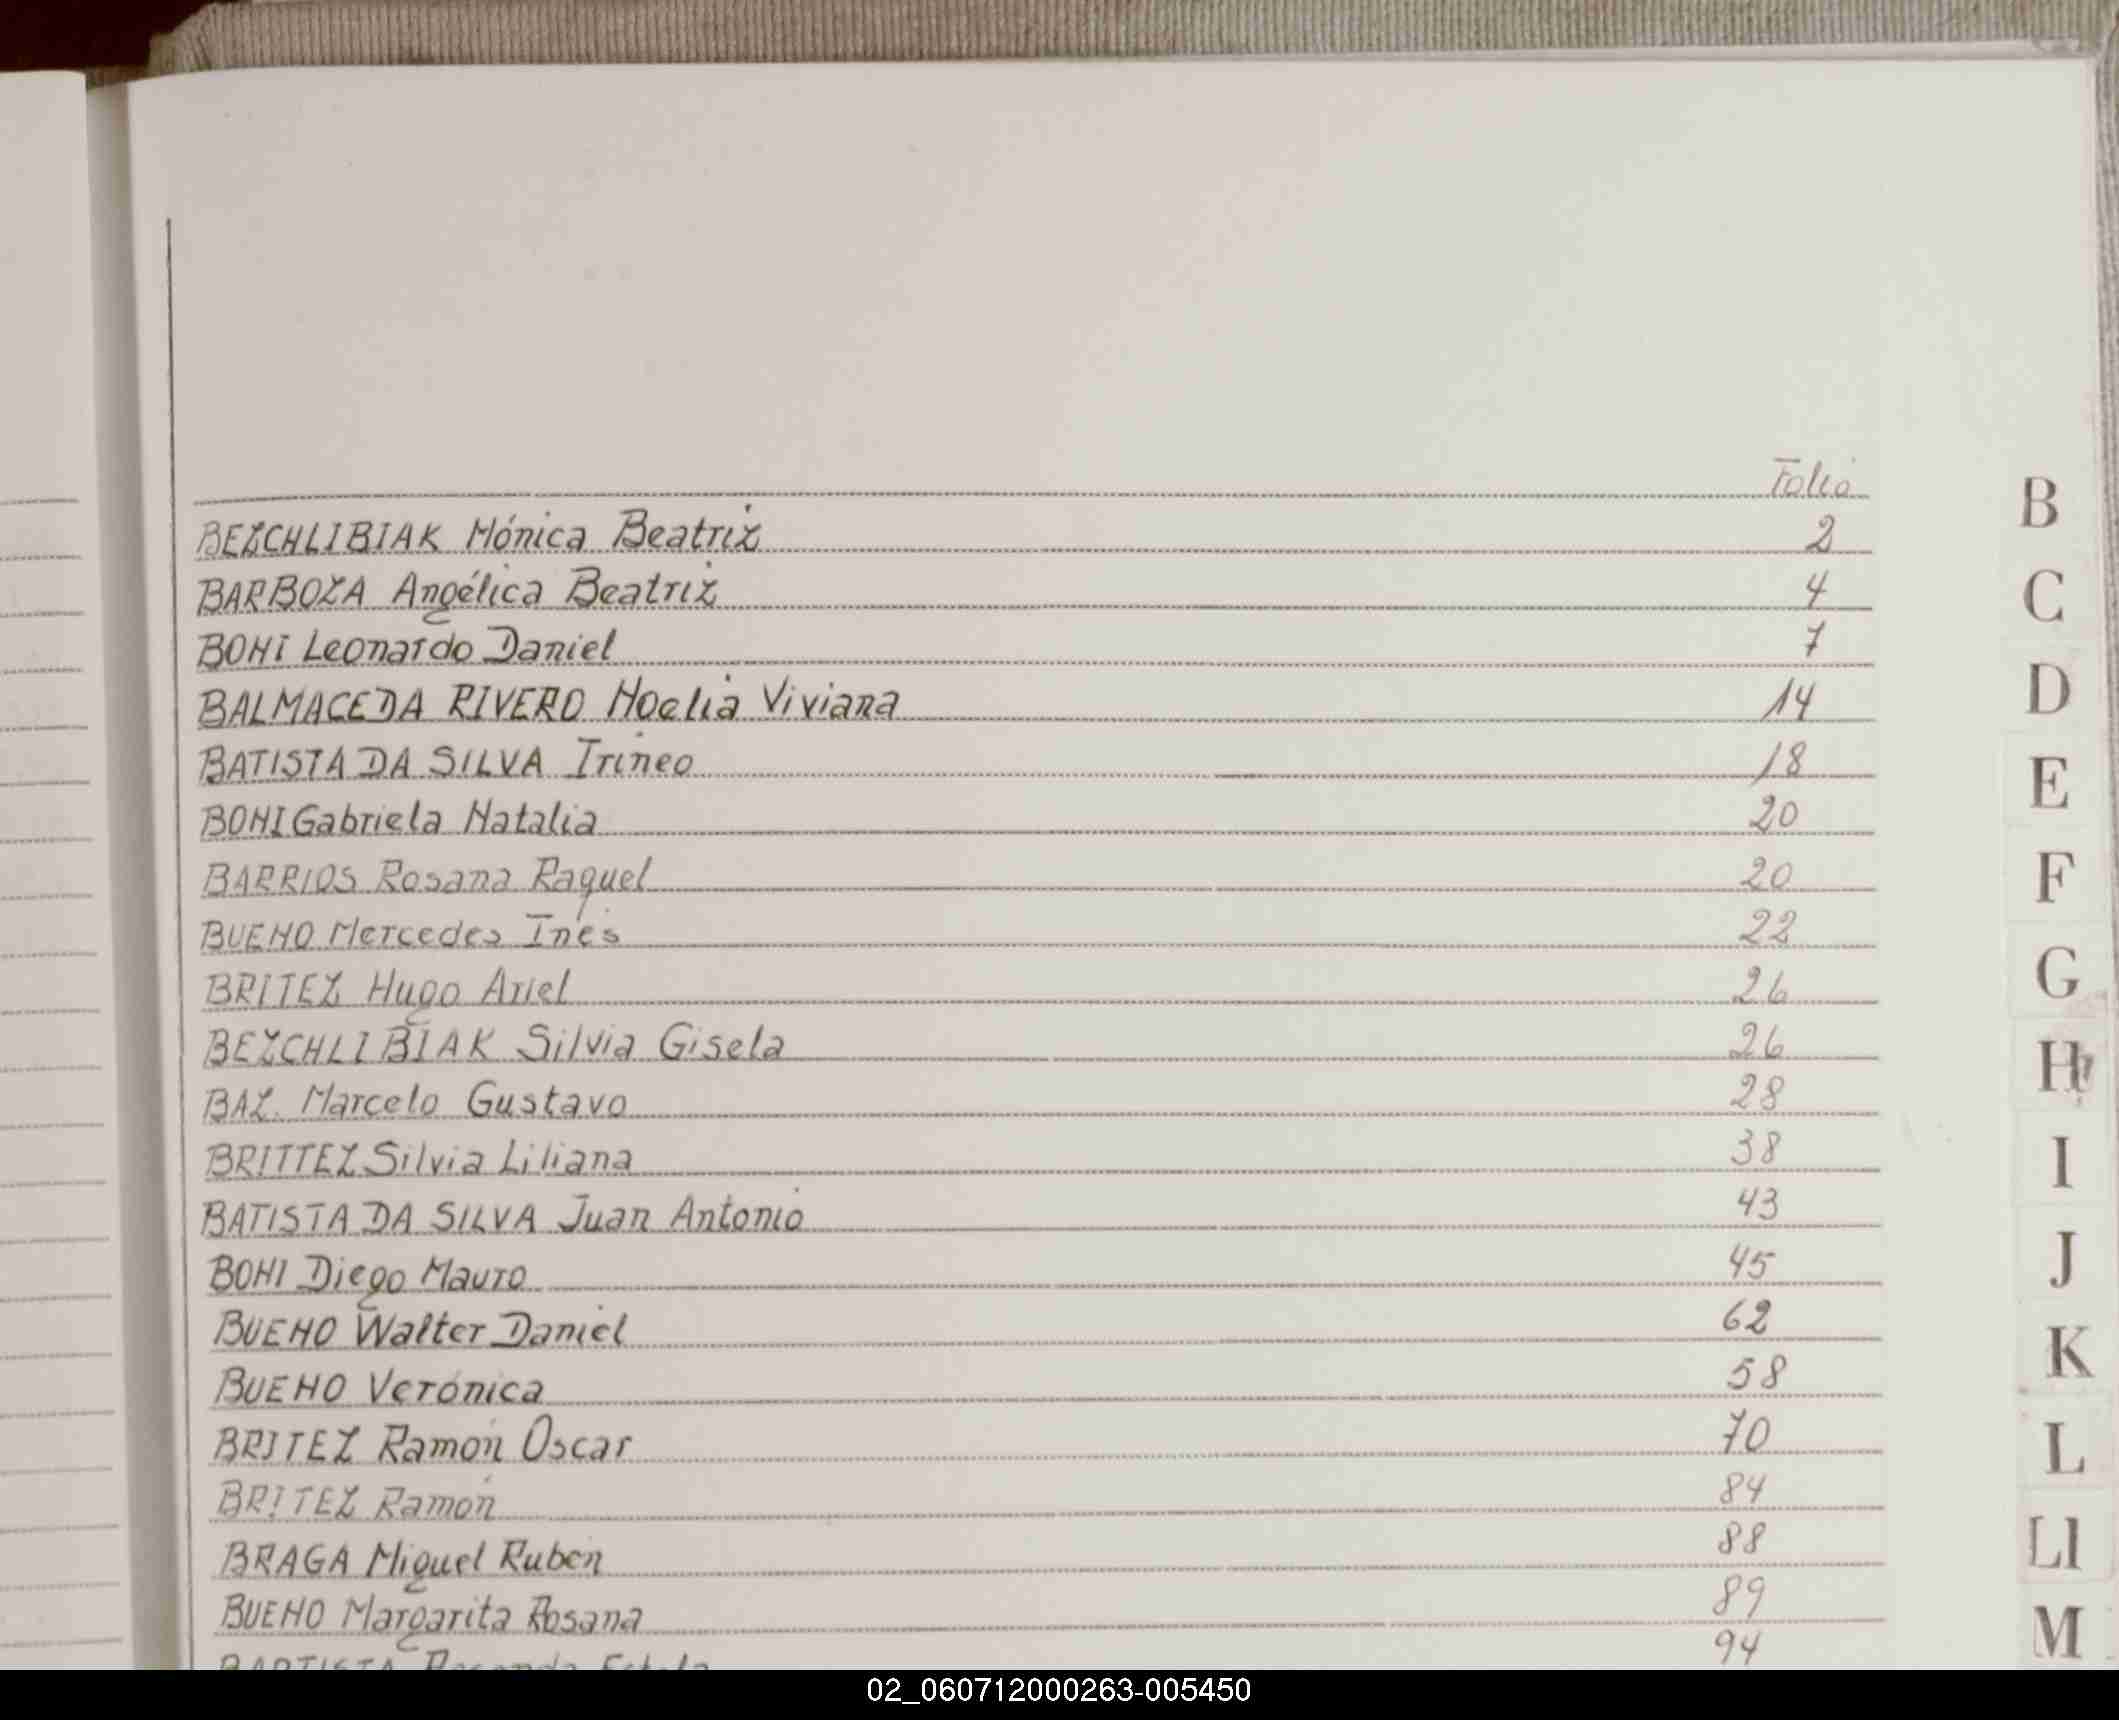 Folio
BEZCHLIBIAK Mónica Beatriz 2
BARBOZA Angélica Beatriz 4
BONI Leonardo Daniel 7
BALMACEDA RIVERO Noelia Viviana 14
BATISTA DA SILVA Irineo 18
BONI Gabriela Natalia 20
BARRIOS Rosana Raquel 20
BUENO Mercedes Inés 22
BRITEZ Hugo Ariel 26
BEZCHLIBIAK Silvia Gisela 26
BAZ. Marcelo Gustavo 28
BRITTEZ Silvia Liliana 38
BATISTA DA SILVA Juan Antonio 43
BONI Diego Mauro 45
BUENO Walter Daniel 62
BUENO Verónica 58
BRITEZ Ramón Oscar 70
BRITEZ Ramón 84
BRAGA Miguel Ruben 88
BUENO Margarita Rosana 89
94
B
C
D
E
F
G
H
I
J
K
L
Ll
M
02_060712000263-005450